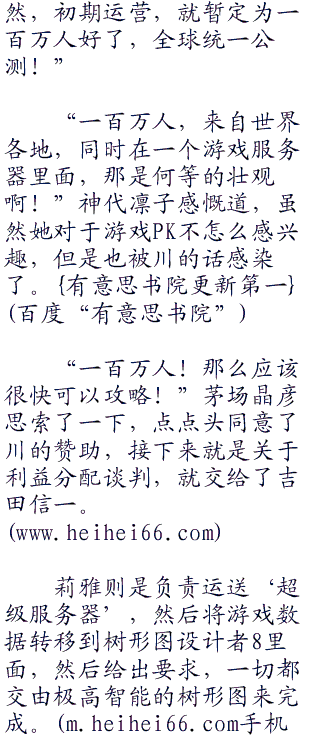 然，初期运营，就暂定为一
百万人好了，全球统一公
测！”
“一百万人，来自世界
各地，同时在一个游戏服务
器里面，那是何等的壮观
啊！”神代凛子感慨道，虽
然她对于游戏PK不怎么感兴
趣，但是也被川的话感染
了。{有意思书院更新第一}
(百度“有意思书院”)
“一百万人！那么应该
很快可以攻略！”茅场晶彦
思索了一下，点点头同意了
川的赞助，接下来就是关于
利益分配谈判，就交给了吉
田信一。
(www.heihei66.com)
莉雅则是负责运送‘超
级服务器’，然后将游戏数
据转移到树形图设计者8里
面，然后给出要求，一切都
交由极高智能的树形图来完
成。(m.heihei66.com手机